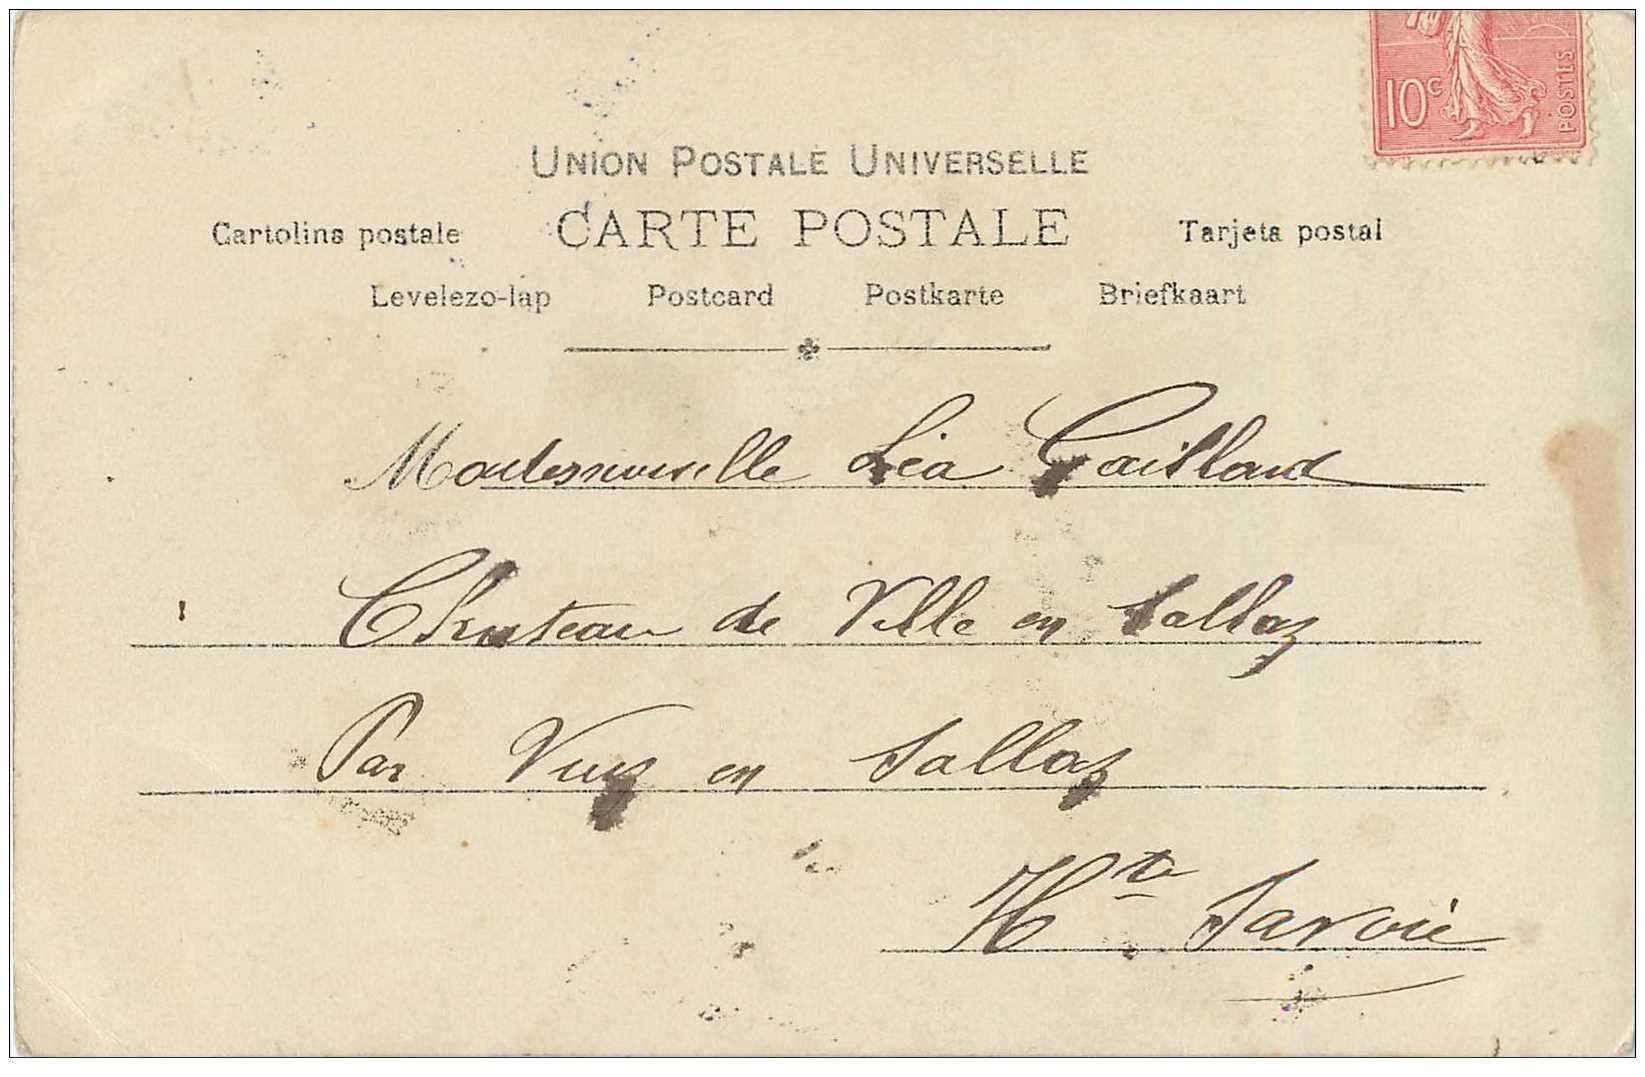 10c POSTES
UNION POSTALE UNIVERSELLE
Cartolina postale CARTE POSTALE Tarjeta postal
Levelezo-lap Postcard Postkarte Briefkaart
Mademoiselle Léa Gaillard
Château de Ville en Sallaz
Par Viuz en Sallaz
Hte Savoie